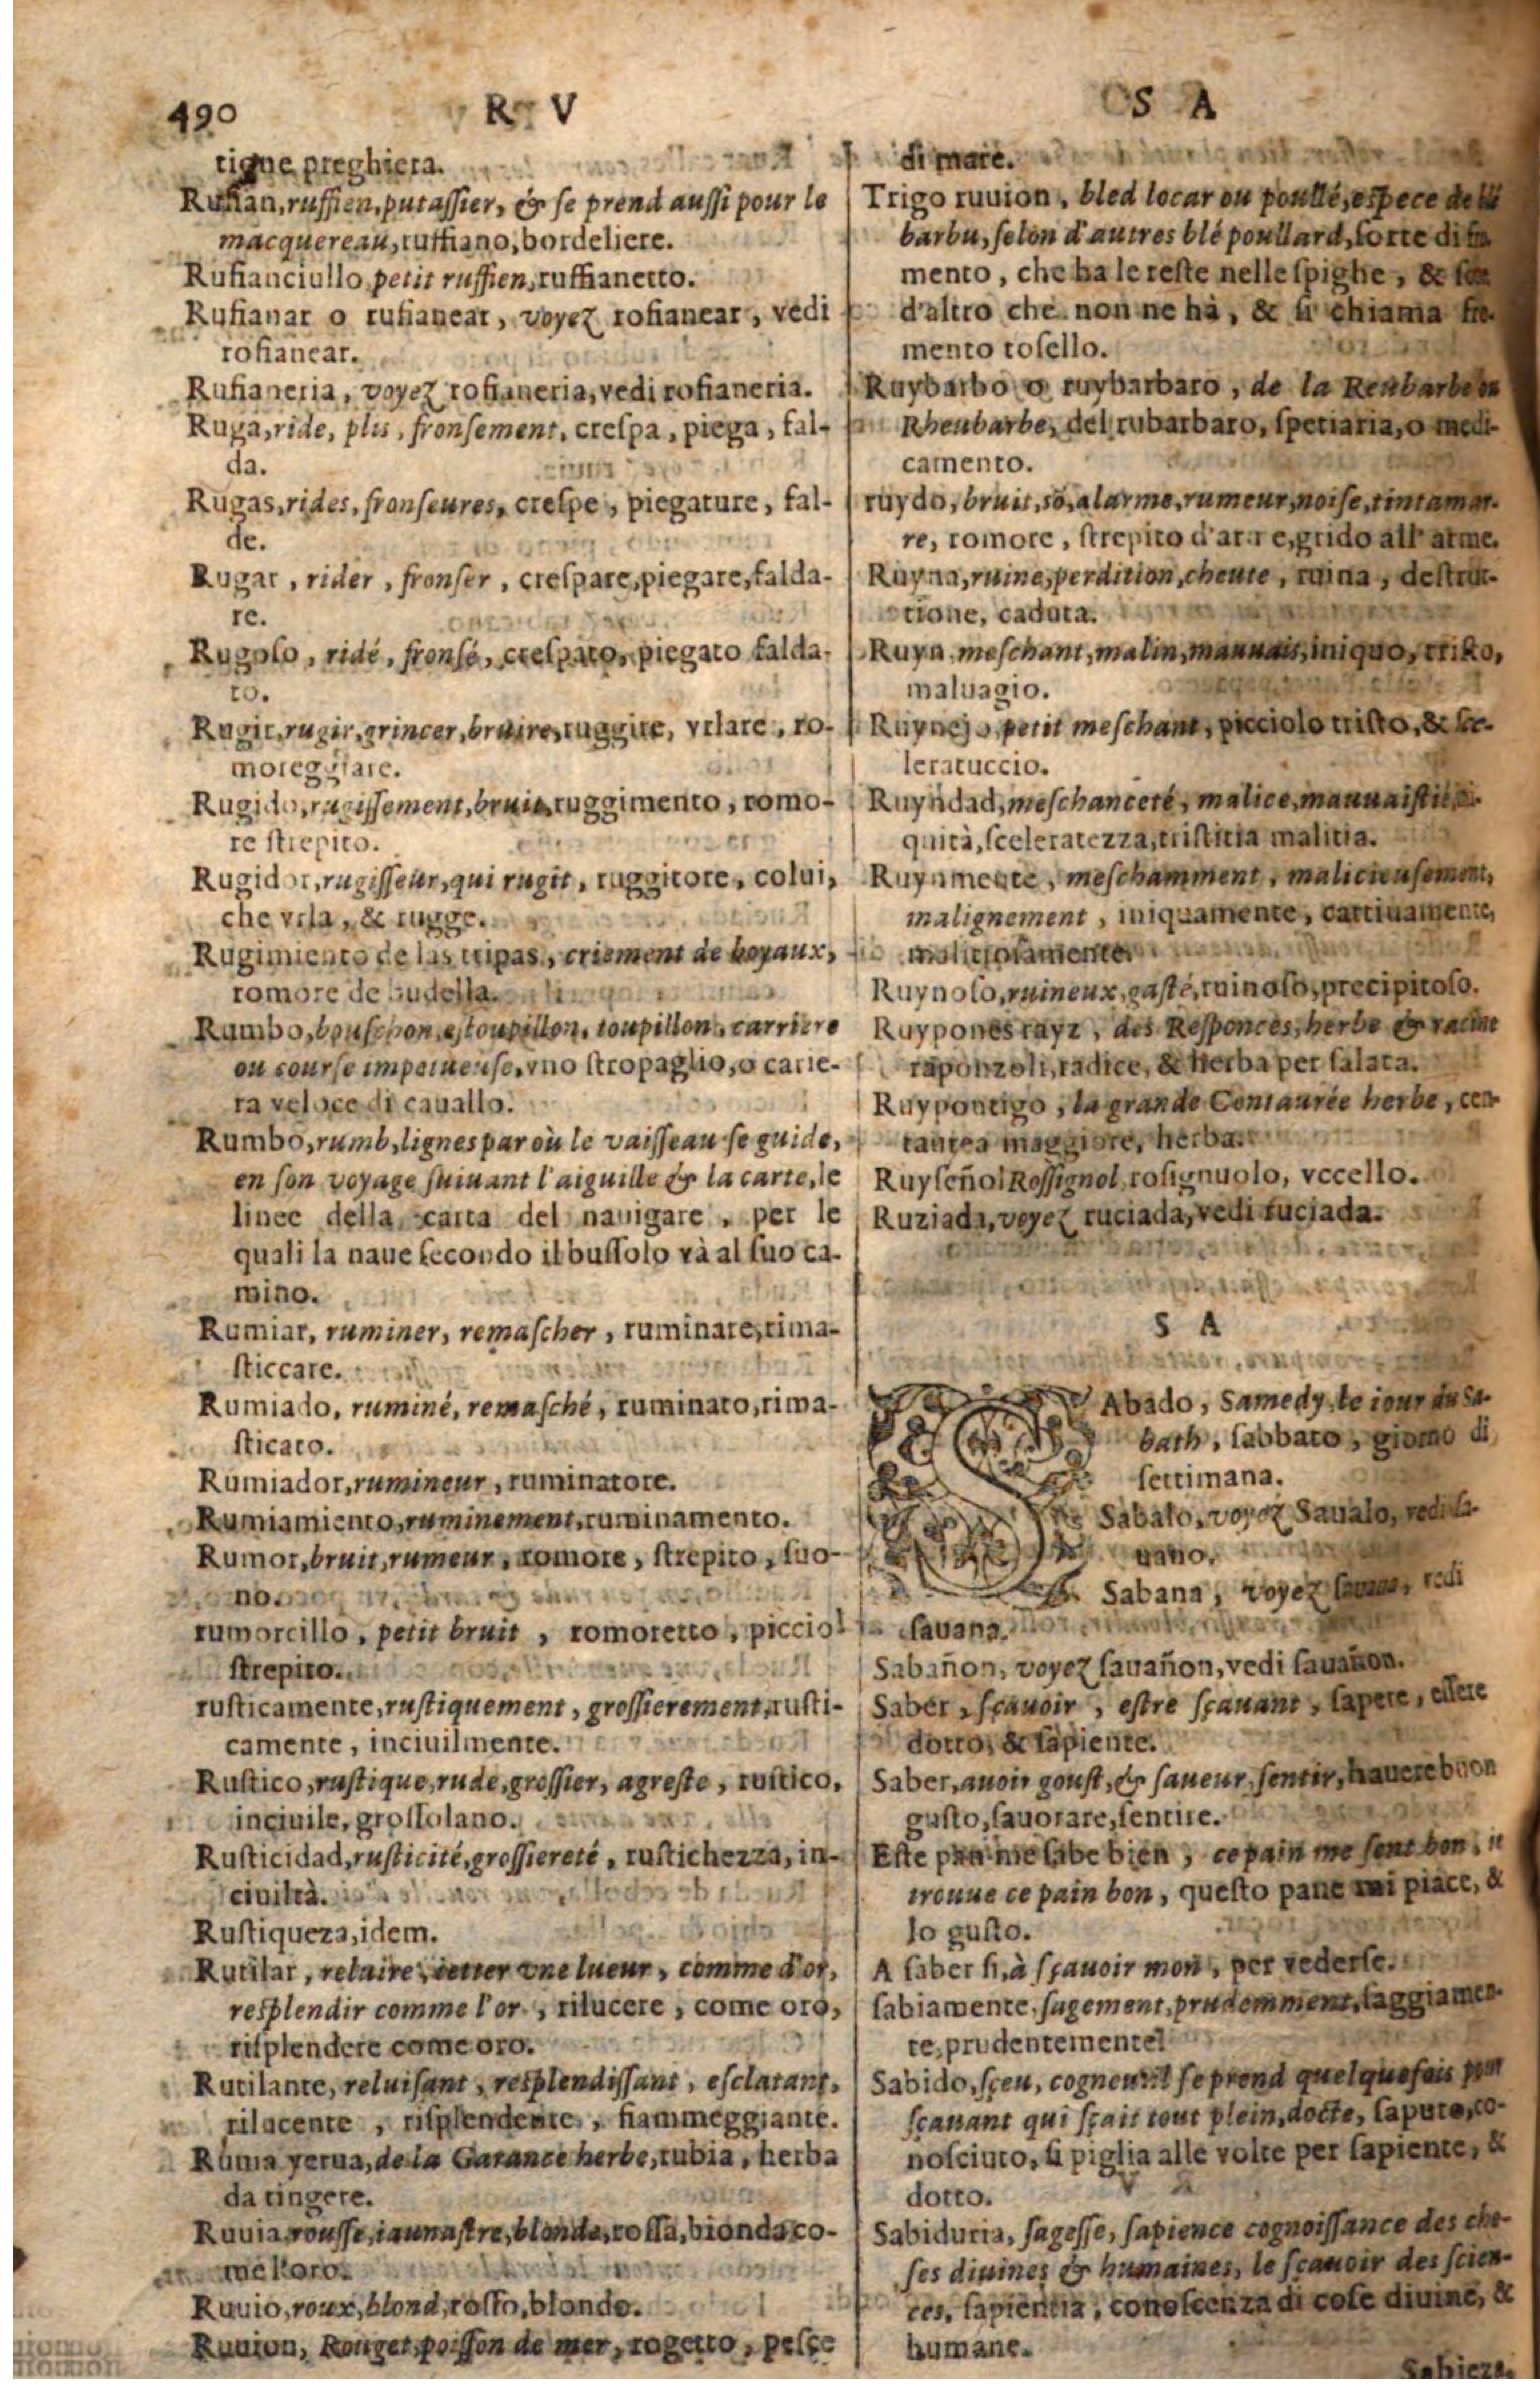 490
R V
S A
tigne preghiera.
Rufian, ruffien, putassier, & se prend aussi pour le
macquereau, ruffiano, bordeliere.
Rufianciullo petit ruffien, ruffianetto.
Rufianar o rufianear, voyez rofianear, vedi
rofianear.
Rufianeria, voyez rofianeria, vedi rofianeria.
Ruga, ride, plis, fronsement, crespa, piega, fal-
da.
Rugas, rides, fronseures, crespe, piegature, fal-
de.
Rugar, rider, fronser, crespare, piegare, falda-
re.
Rugoso, ridé, fronsé, crespato, piegato falda-
to.
Rugir, rugir, grincer, bruire, ruggire, vrlare, ro-
moreggiare.
Rugido, rugissement, bruit, ruggimento, romo-
re strepito.
Rugidor, rugisseur, qui rugit, ruggitore, colui,
che vrla, & rugge.
Rugimiento de las tripas, criement de boyaux,
romore de budella.
Rumbo, bouschon, estoupillon, toupillon, carriere
ou course impetueuse, vno stropaglio, o carie-
ra veloce di cauallo.
Rumbo, rumb, lignes par où le vaisseau se guide,
en son voyage suiuant l'aiguille & la carte, le
linee della carta del nauigare, per le
quali la naue secondo il bussolo và al suo ca-
mino.
Rumiar, ruminer, remascher, ruminare, rima-
sticcare.
Rumiado, ruminé, remasché, ruminato, rima-
sticato.
Rumiador, rumineur, ruminatore.
Rumiamiento, ruminement, ruminamento.
Rumor, bruit, rumeur, romore, strepito, suo-
no.
rumorcillo, petit bruit, romoretto, picciol
strepito.
rusticamente, rustiquement, grossierement, rusti-
camente, inciuilmente.
Rustico, rustique, rude, grossier, agreste, rustico,
inciuile, grossolano.
Rusticidad, rusticité, grossiereté, rustichezza, in-
ciuiltà.
Rustiqueza, idem.
Rutilar, reluire, ietter vne lueur, comme d'or,
resplendir comme l'or, rilucere, come oro,
risplendere come oro.
Rutilante, reluisant, resplendissant, esclatant,
rilucente, risplendente, fiammeggiante.
Ruuia yerua, de la Garance herbe, rubia, herba
da tingere.
Ruuia rousse, iaunastre, blonde, rossa, bionda co-
me l'oro.
Ruuio, roux, blond, rosso, blondo.
Ruuion, Rouget, poisson de mer, rogetto, pesce
di mare.
Trigo ruuion, bled locar ou poullé, espece de
barbu, selon d'autres blé poullard, sorte di
mento, che ha le reste nelle spighe, &
d'altro che non ne hà, & si chiama fre-
mento tosello.
Ruybarbo o ruybarbaro, de la Reubarbe ou
Rheubarbe, del rubarbaro, spetiaria, o medi-
camento.
ruydo, bruit, sõ, alarme, rumeur, noise, tintamar-
re, romore, strepito d'arme, grido all'arme.
Ruyna, ruine, perdition, cheute, ruina, destrut-
tione, caduta.
Ruyn meschant, malin, mauuais, iniquo, tristo,
maluagio.
Ruynejo petit meschant, picciolo tristo, & sce-
leratuccio.
Ruyndad, meschanceté, malice, mauuaistié, ini-
quità, sceleratezza, tristitia malitia.
Ruynmente, meschamment, malicieusement,
malignement, iniquamente, cattiuamente,
malitiosamente.
Ruynoso, ruineux, gasté, ruinoso, precipitoso.
Ruypones rayz, des Responces, herbe & racine
raponzoli, radice, & herba per salata.
Ruypontigo, la grande Centaurée herbe, cen-
taurea maggiore, herba.
Ruyseñol Rossignol, rosignuolo, vccello.
Ruziada, voyez ruciada, vedi ruciada.
S A
SAbado, Samedy, le iour du Sa-
bath, sabbato, giorno di
settimana.
Sabalo, voyez Saualo, vedi sa-
ualo.
Sabana, voyez sauana, vedi
sauana.
Sabañon, voyez sauañon, vedi sauañon.
Saber, sçauoir, estre sçauant, sapere, essere
dotto, & sapiente.
Saber, auoir goust, & saueur, sentir, hauere buon
gusto, sauorare, sentire.
Este pan me sabe bien, ce pain me sent bon, ie
trouue ce pain bon, questo pane mi piace, &
lo gusto.
A saber si, à sçauoir mon, per vederse.
sabiamente, sagement, prudemment, saggiamen-
te, prudentemente.
Sabido, sçeu, cogneu: il se prend quelquefois pour
sçauant qui sçait tout plein, docte, saputo, co-
nosciuto, si piglia alle volte per sapiente, &
dotto.
Sabiduria, sagesse, sapience cognoissance des cho-
ses diuines & humaines, le sçauoir des scien-
ces, sapientia, conoscenza di cose diuine, &
humane.
Sabieza,